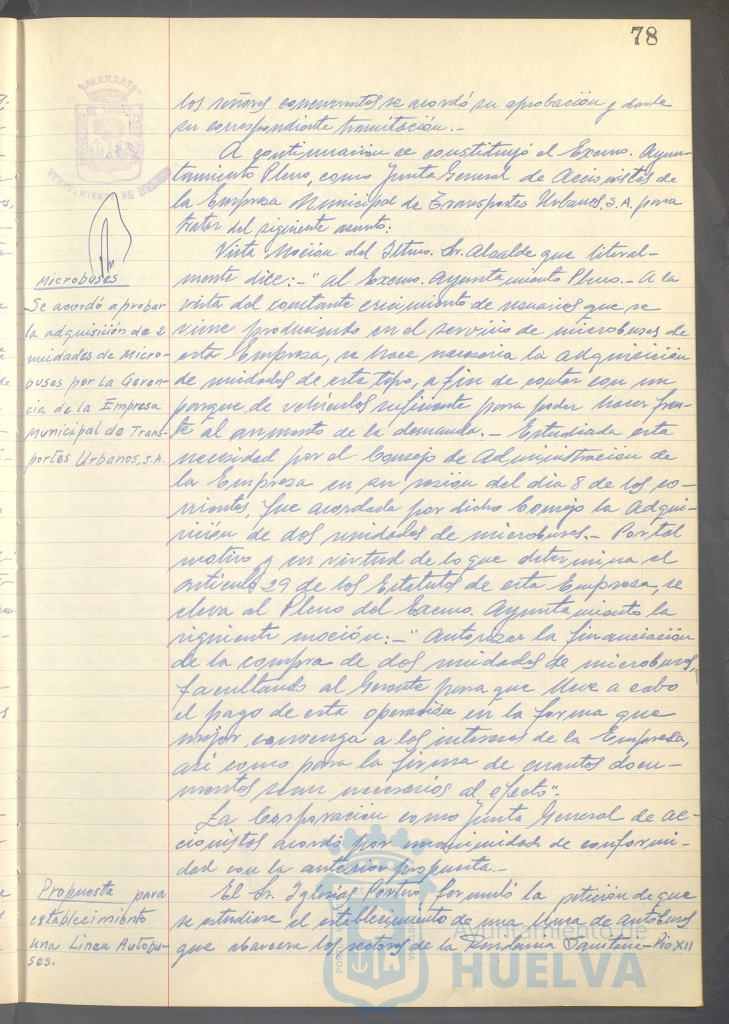 78
los señores concurrentes se acordó su aprobación y darle
su correspondiente tramitación.-
A continuación se constituyó el Excmo. Ayun-
tamiento Pleno, como Junta General de Accionistas de
la Empresa Municipal de Transportes Urbanos, S.A. para
tratar del siguiente asunto:
Microbuses
Se acordó aprobar
la adquisición de 2
unidades de Micro-
buses por la Geren-
cia de la Empresa
Municipal de Trans-
portes Urbanos, S.A.
Vista Moción del Iltmo. Sr. Alcalde que literal-
mente dice:-" Al Excmo. Ayuntamiento Pleno.- A la
vista del constante crecimiento de usuarios que se
viene produciendo en el servicio de microbuses de
esta Empresa, se hace necesaria la adquisición
de unidades de este tipo, a fin de contar con un
parque de vehículos suficiente para poder hacer fren-
te al aumento de la demanda.- Estudiada esta
necesidad por el Consejo de Administración de
la Empresa en su sesión del dia 8 de los co-
rrientes, fue acordada por dicho Consejo la adqui-
sición de dos unidades de microbuses.- Por tal
motivo y en virtud de lo que determina el
artículo 29 de los Estatutos de esta Empresa, se
eleva al Pleno del Excmo. Ayuntamiento la
siguiente moción:-" Autorizar la financiación
de la compra de dos unidades de microbuses,
facultando al Gerente para que lleve a cabo
el pago de esta operación en la forma que
mejor convenga a los intereses de la Empresa,
así como para la firma de cuantos docu-
mentos sean necesarios al efecto".
La Corporación como Junta General de ac-
cionistas acordó por unanimidad de conformi-
dad con la anterior propuesta.-
Propuesta para
establecimiento
una Linea Autobu-
ses.
El Sr. Iglesias formuló la petición de que
se estudiase el establecimiento de una linea de autobuses
que abarcara los sectores de la Pio XII
Ayuntamiento de
HUELVA